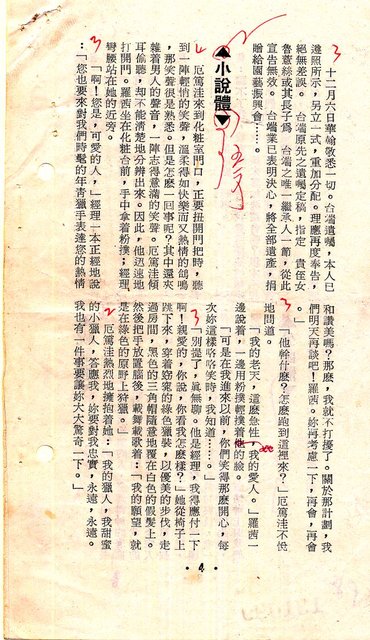 十二月六日華翰敬悉一切。台端遺囑，本人已
遵照所示，另立一式，重加分配。理應再度奉告，
絕無差誤。　台端原先之遺囑定稿，指定　貴侄女
魯薏絲或其長子爲　台端之唯一繼承人一節，從此
宣告無效。　台端業已表明決心，將全部遺產，捐
贈給園藝振興會……。
▲小說體▼
厄篤洼來到化粧室門口，正要扭開門把時，聽
到一陣輕悄的笑聲，溫柔得如快樂而又熱情的鴿鳴
，那笑聲很是熟悉。但是怎麼一回事呢？其中還夾
雜着男人的聲音，一陣志得意滿的笑聲。厄篤洼傾
耳偷聽，却不能清楚地分辨出來。因此，他迅速地
打開門。羅茜坐在化粧台前，手中拿着粉撲；經理
彎腰站在她的近旁。
「啊！您是，可愛的人，」經理一本正經地說
：「您也要來對我們時髦的年青獵手表達您的熱情
和讚美嗎？那麼，我就不打擾了。關於那計劃，我
們明天再談吧！羅茜。妳再考慮一下，再會，再會
。」
「他幹什麼？怎麼跑到這裡來？」厄篤洼不悅
地問道。
「我的老天，這麼急性！我的愛人。」羅茜一
邊說着，一邊用粉撲輕撲着她的臉。
「可是在我進來以前，你們笑得那麼開心，每
次妳這樣咯咯笑時，我知道……。」
「別提了，眞無聊。他是經理，我得應付一下
啊！親愛的，你說，你看我怎麼樣？」她從椅子上
跳下來，穿着窈窕的綠色獵裝，以優美的步伐，走
過房間，黑色的三角帽隨意地覆在白色的假髮上。
然後把手放置腦後，載舞載歌着：「我的願望，就
是在綠色的原野上狩獵。」
厄篤洼熱烈地擁抱着她：「我的獵人，我甜蜜
的小獵人，答應我，妳要對我忠實，永遠，永遠。
我也有一件事要讓妳大大驚奇一下。」
·4·